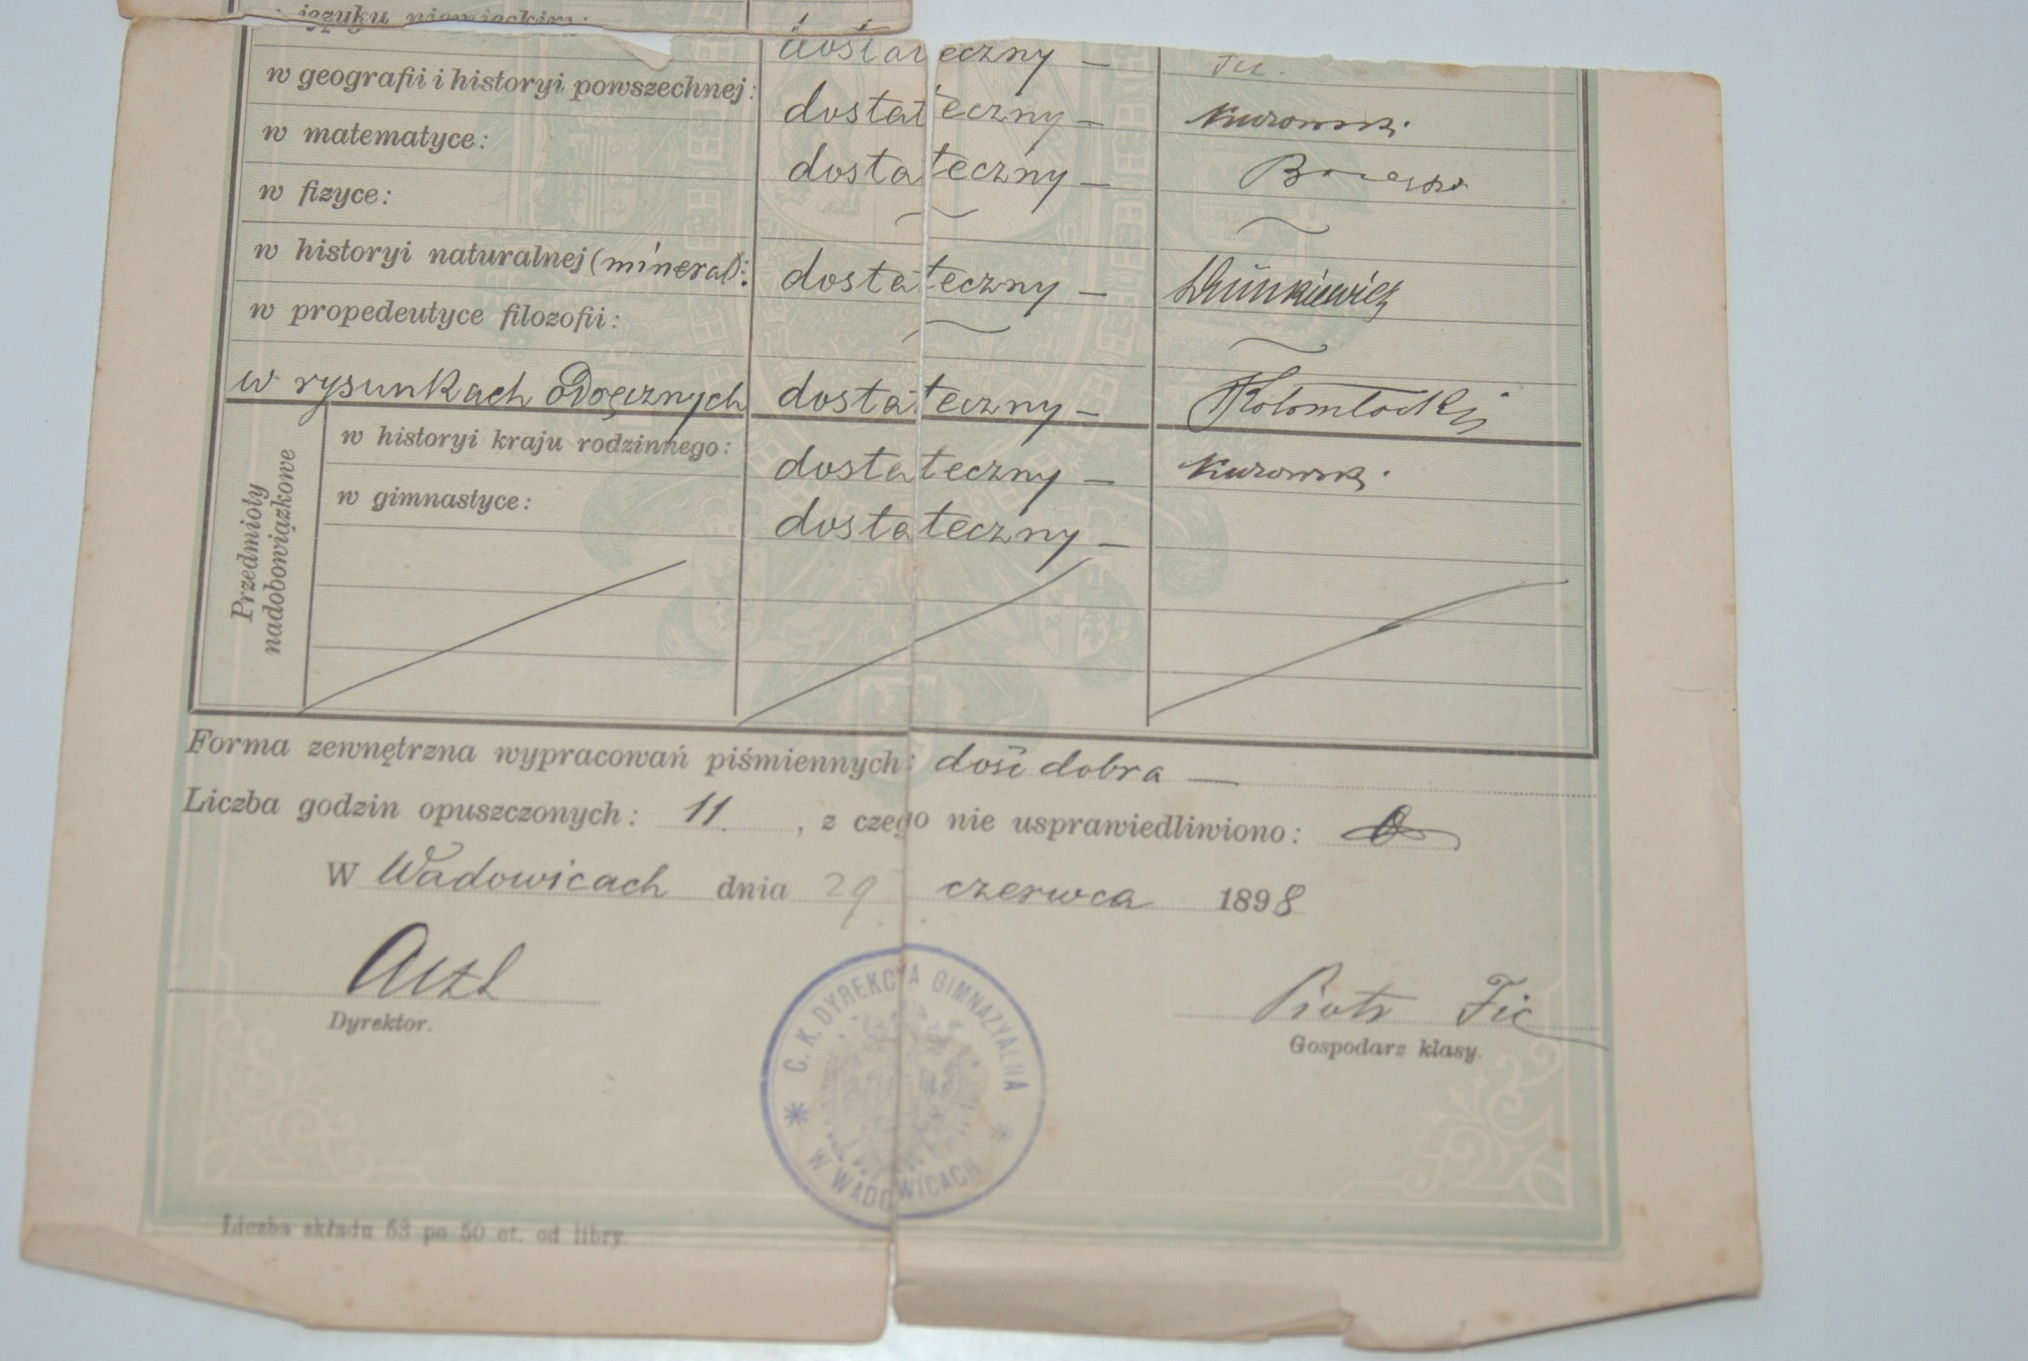 języku niemieckim:
dostateczny —
w geografii i historyi powszechnej: dostateczny — Kurowski.
w matematyce: dostateczny —
w fizyce:
w historyi naturalnej (mineral): dostateczny —
w propedeutyce filozofii:
w rysunkach odręcznych dostateczny —
Przedmioty nadobowiązkowe
w historyi kraju rodzinnego: dostateczny — Kurowski.
w gimnastyce: dostateczny —
Forma zewnętrzna wypracowań piśmiennych: dość dobra —
Liczba godzin opuszczonych: 11. , z czego nie usprawiedliwiono: 0
W Wadowicach dnia 29 czerwca 1898
Arzt Piotr Fic
Dyrektor. Gospodarz klasy.
C. K. DYREKCYA GIMNAZYALNA
* W WADOWICACH *
Liczba składu 53 po 50 ct. od libry.